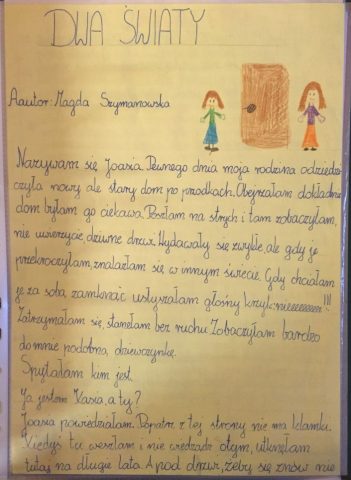 DWA ŚWIATY
Aautor: Magda Szymanowska
Nazywam się Joasia. Pewnego dnia moja rodzina odziedzi-
czyła nowy ale stary dom po przodkach. Obejrzałam dokładnie
dom byłam go ciekawa. Poszłam na strych i tam zobaczyłam,
nie uwierzycie, dziwne drzwi. Wydawały się zwykłe ale gdy je
przekroczyłam, znalazłam się w innym świecie. Gdy chciałam
je za sobą zamknąć usłyszałam głośny krzyk: nieeeeeeee!!!
Zatrzymałam się, stanęłam bez ruchu. Zobaczyłam bardzo
do mnie podobną dziewczynkę.
Spytałam kim jest.
Ja jestem Kasia, a ty?
Joasia powiedziałam. Popatrz z tej strony nie ma klamki.
Kiedyś tu weszłam i nie wiedząc otym, utknęłam
tutaj na długie lata. A pod drzwi, żeby się znów nie